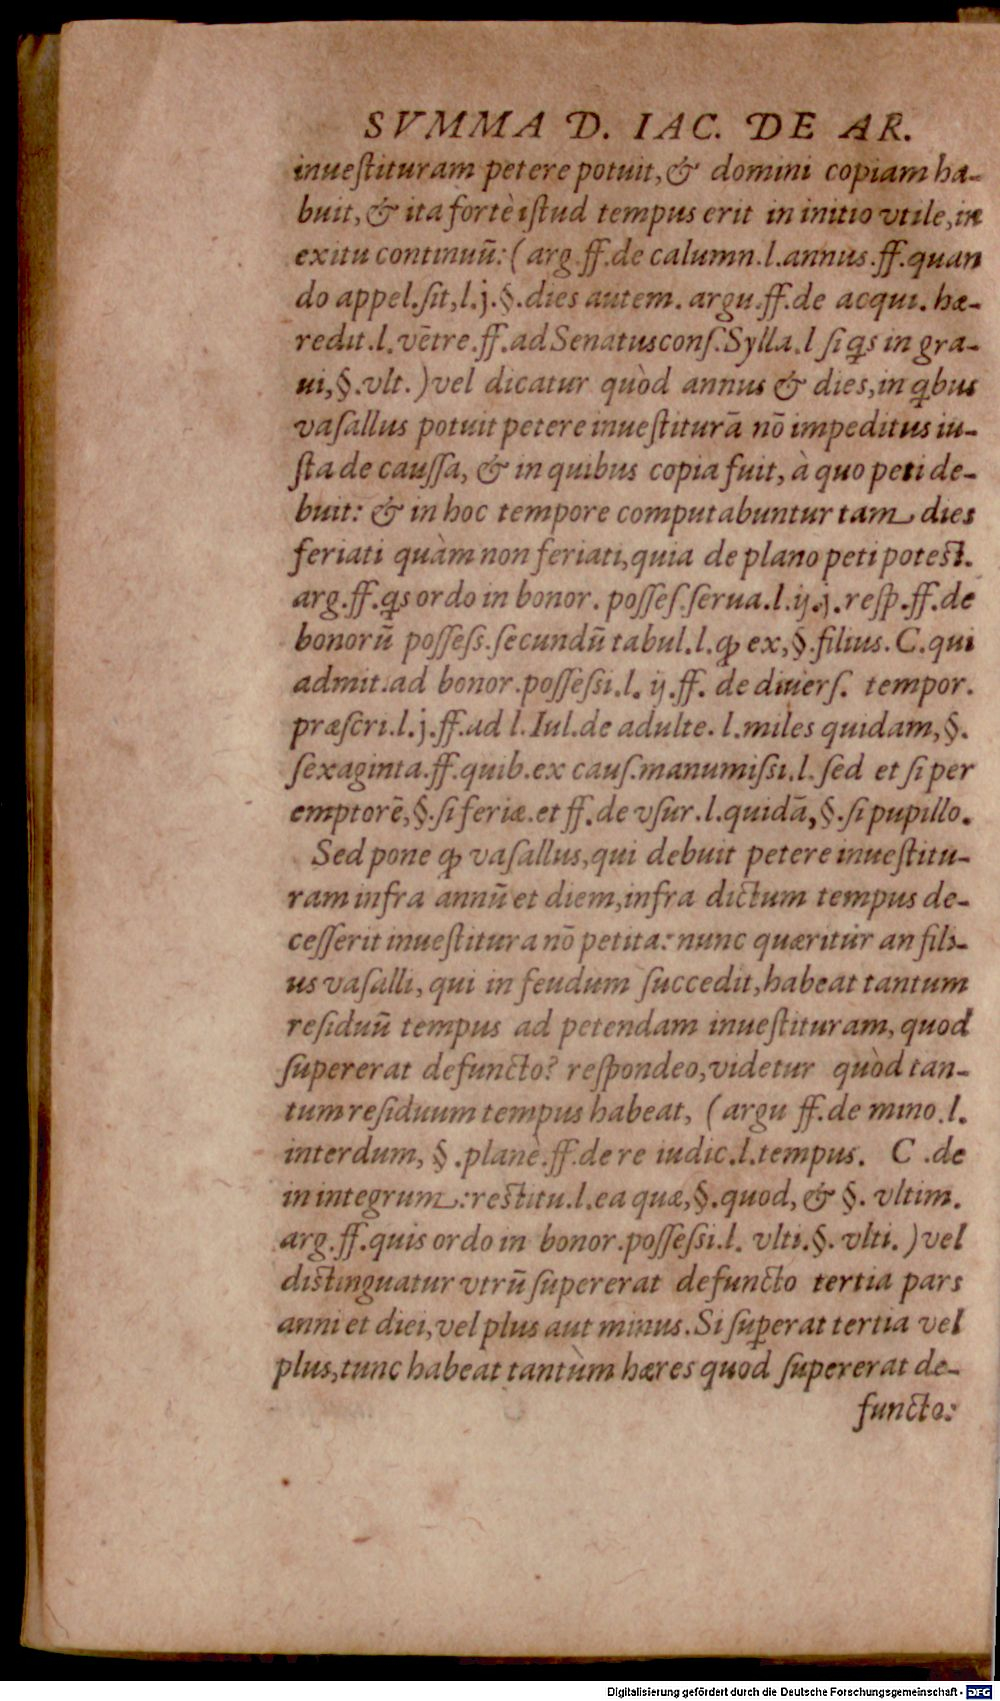 SVMMA D. IAC. DE AR.
inueſtituram petere potuit, & domini copiam ha-
buit, & ita fortè iſtud tempus erit in initio vtile, in
exitu continuũ: ( arg. ff. de calumn. l. annus. ff. quan
do appel. ſit, l. j. §. dies autem. argu. ff. de acqui. hæ-
redit. l. vẽtre. ff. ad Senatusconſ. Sylla. l ſi qs in gra-
ui, §. vlt. ) vel dicatur quòd annus & dies, in qbus
vaſallus potuit petere inueſtiturã nõ impeditus iu-
ſta de cauſſa, & in quibus copia fuit, à quo peti de-
buit: & in hoc tempore computabuntur tam dies
feriati quàm non feriati, quia de plano peti poteſt.
arg. ff. qs ordo in bonor. poſſeſ. ſerua. l. ij. j. reſp. ff. de
bonorũ poſſeſs. ſecundũ tabul. l. ꝙ ex, §. filius. C. qui
admit. ad bonor. poſſeſsi. l. ij. ff. de diuerſ. tempor.
præſcri. l. j. ff. ad l. Iul. de adulte. l. miles quidam, §.
ſexaginta. ff. quib. ex cauſ. manumiſsi. l. ſed et ſi per
emptorẽ, §. ſi feriæ. et ff. de vſur. l. quidã, §. ſi pupillo.
Sed pone ꝙ vaſallus, qui debuit petere inueſtitu-
ram infra annũ et diem, infra dictum tempus de-
ceſſerit inueſtitura nõ petita: nunc quæritur an fili-
us vaſalli, qui in feudum ſuccedit, habeat tantum
reſiduũ tempus ad petendam inueſtituram, quod
ſupererat defuncto? reſpondeo, videtur quòd tan-
tum reſiduum tempus habeat, ( argu ff. de mino. l.
interdum, §. planè. ff. de re iudic. l. tempus. C .de
in integrum: reſtitu. l. ea quæ, §. quod, & §. vltim.
arg. ff. quis ordo in bonor. poſſeſsi. l. vlti. §. vlti. ) vel
diſtinguatur vtrũ ſupererat defuncto tertia pars
anni et diei, vel plus aut minus. Si ſuꝑerat tertia vel
plus, tunc habeat tantùm hæres quod ſupererat de-
functo:
Digitalisierung gefördert durch die Deutsche Forschungsgemeinschaft - DFG